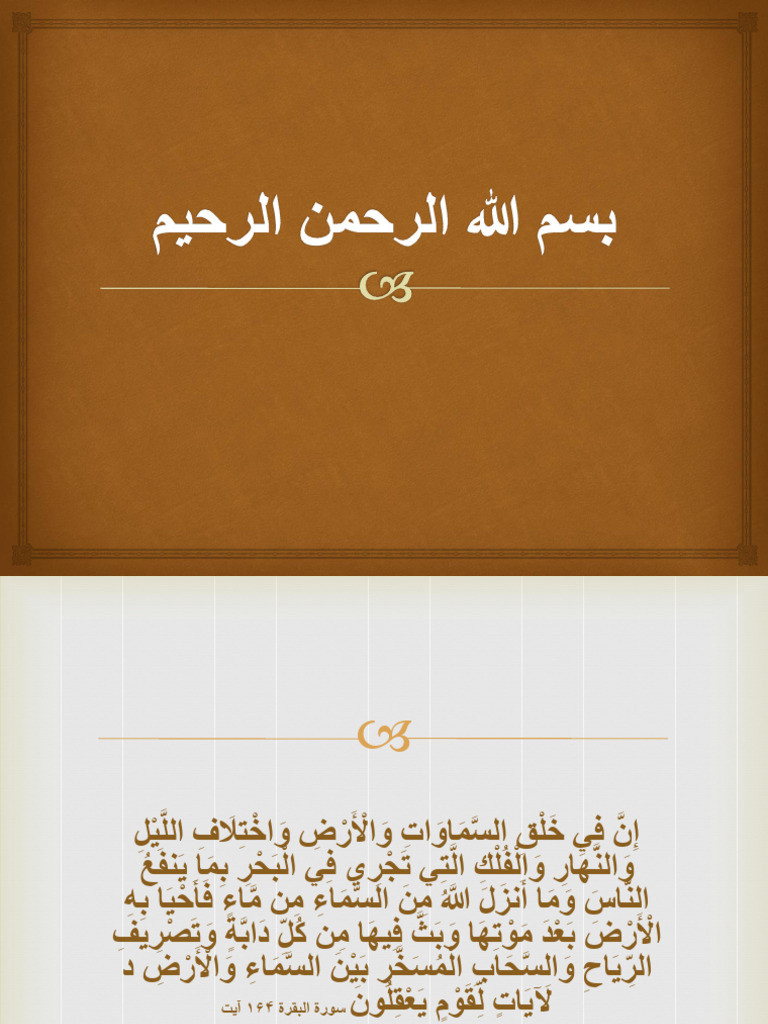 بسم الله الرحمن الرحيم
إِنَّ فِي خَلْقِ السَّمَاوَاتِ وَالْأَرْضِ وَاخْتِلَافِ اللَّيْلِ
وَالنَّهَارِ وَالْفُلْكِ الَّتِي تَجْرِي فِي الْبَحْرِ بِمَا يَنفَعُ
النَّاسَ وَمَا أَنزَلَ اللَّهُ مِنَ السَّمَاءِ مِن مَّاءٍ فَأَحْيَا بِهِ
الْأَرْضَ بَعْدَ مَوْتِهَا وَبَثَّ فِيهَا مِن كُلِّ دَابَّةٍ وَتَصْرِيفِ
الرِّيَاحِ وَالسَّحَابِ الْمُسَخَّرِ بَيْنَ السَّمَاءِ وَالْأَرْضِ د
لَآيَاتٍ لِّقَوْمٍ يَعْقِلُونَ سورة البقرة ۱۶۴ آیت